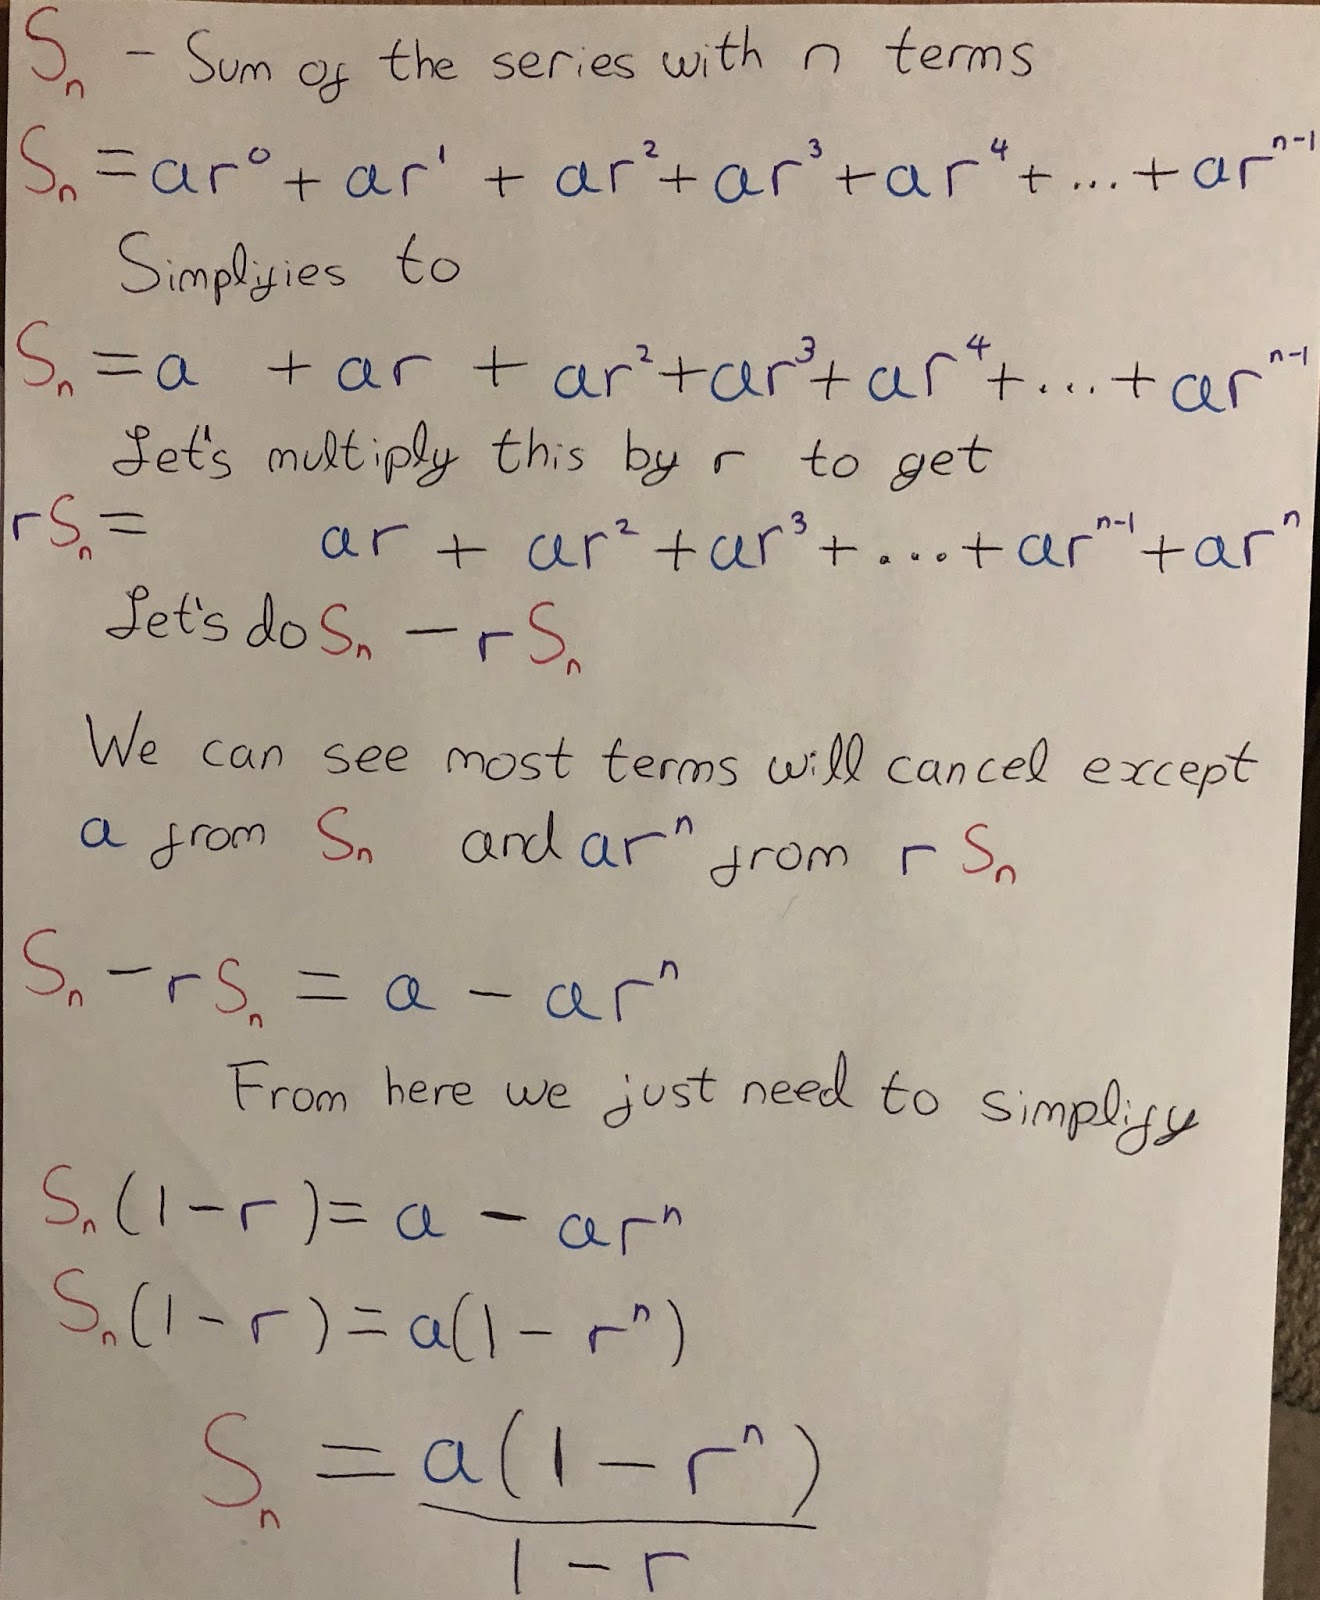 Sₙ - Sum of the series with n terms
Sₙ = ar⁰ + ar¹ + ar² + ar³ + ar⁴ + ... + arⁿ⁻¹
Simplyies to
Sₙ = a + ar + ar² + ar³ + ar⁴ + ... + arⁿ⁻¹
Let's multiply this by r to get
rSₙ = ar + ar² + ar³ + ... + arⁿ⁻¹ + arⁿ
Let's do Sₙ - rSₙ
We can see most terms will cancel except
a from Sₙ and arⁿ from r Sₙ
Sₙ - rSₙ = a - arⁿ
From here we just need to simplify
Sₙ(1-r) = a - arⁿ
Sₙ(1-r) = a(1 - rⁿ)
Sₙ = a(1 - rⁿ)
1 - r